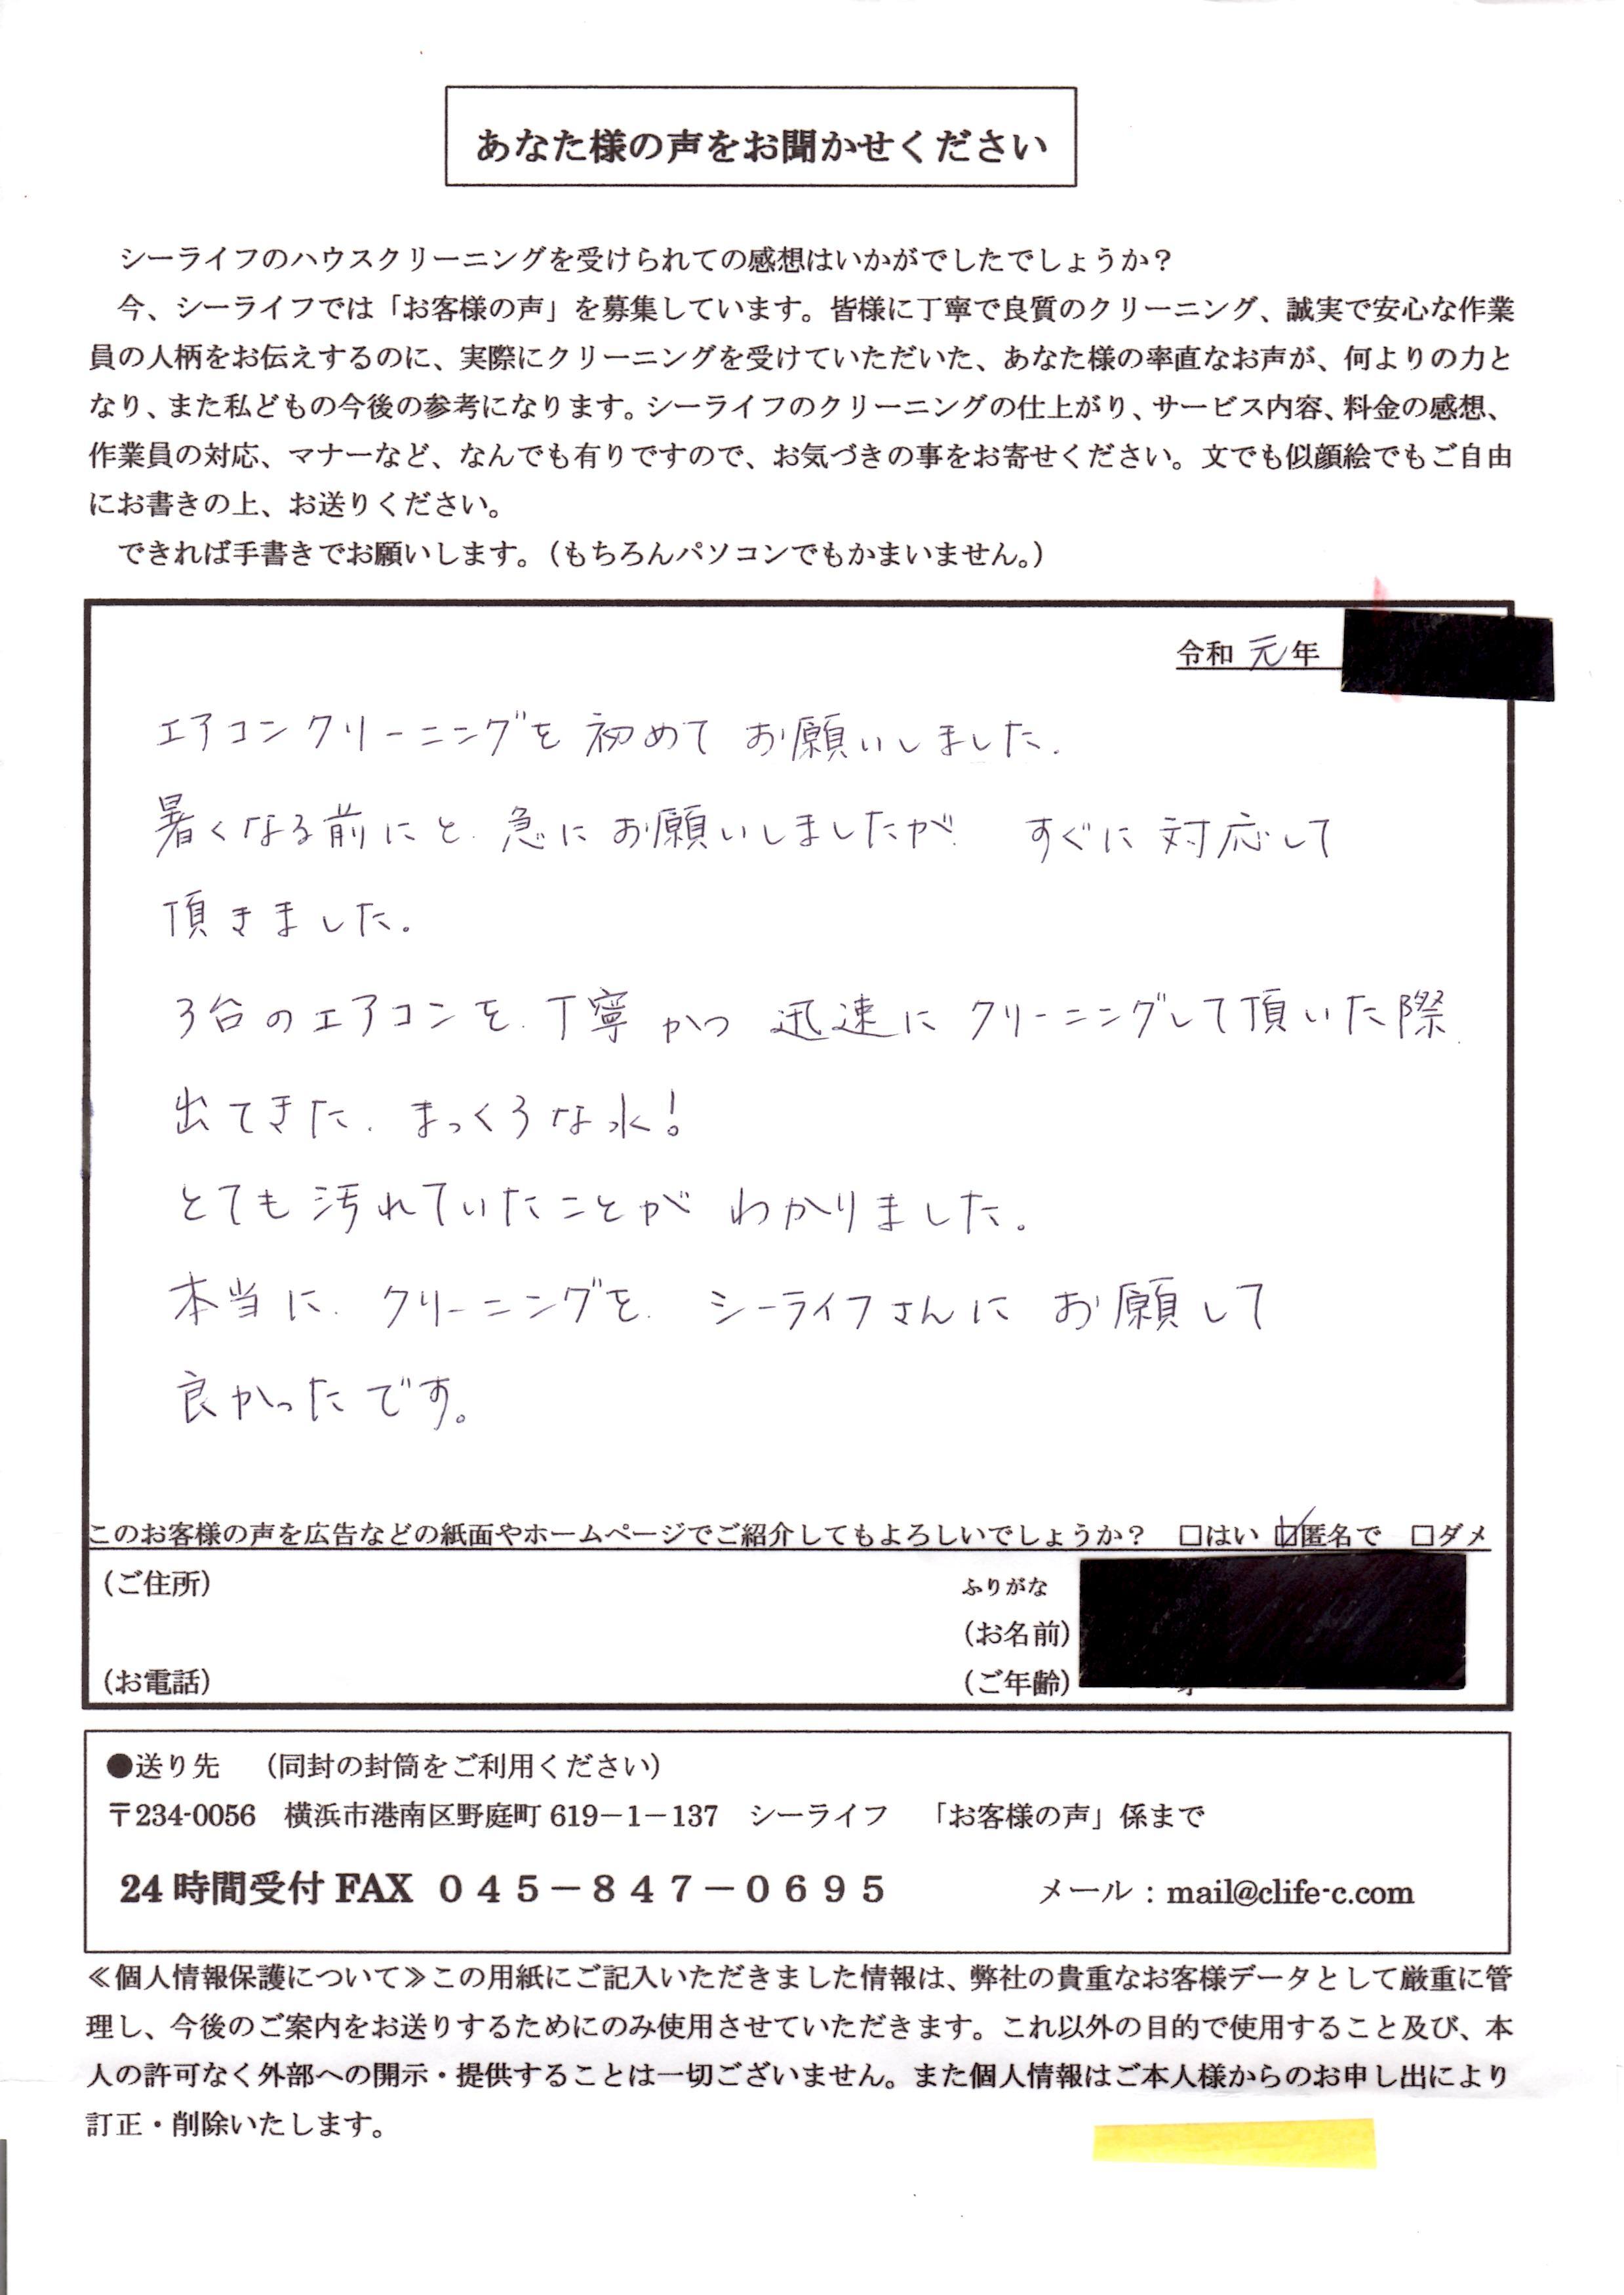 あなた様の声をお聞かせください
シーライフのハウスクリーニングを受けられての感想はいかがでしたでしょうか？
今、シーライフでは「お客様の声」を募集しています。皆様に丁寧で良質のクリーニング、誠実で安心な作業
員の人柄をお伝えするのに、実際にクリーニングを受けていただいた、あなた様の率直なお声が、何よりの力と
なり、また私どもの今後の参考になります。シーライフのクリーニングの仕上がり、サービス内容、料金の感想、
作業員の対応、マナーなど、なんでも有りですので、お気づきの事をお寄せください。文でも似顔絵でもご自由
にお書きの上、お送りください。
できれば手書きでお願いします。（もちろんパソコンでもかまいません。）
令和 元年
エアコンクリーニングを 初めて お願いしました.
暑くなる前にと. 急に お願いしましたが. すぐに 対応して
頂きました。
3台のエアコンを. 丁寧 かつ 迅速に クリーニングして頂いた際.
出てきた. まっくろな水!
とても 汚れていたことが わかりました。
本当に. クリーニングを. シーライフさんに お願して
良かったです。
このお客様の声を広告などの紙面やホームページでご紹介してもよろしいでしょうか？ □はい ☑匿名で □ダメ
（ご住所） ふりがな
（お名前）
（お電話） （ご年齢）
●送り先 （同封の封筒をご利用ください）
〒234-0056 横浜市港南区野庭町 619－1－137 シーライフ 「お客様の声」係まで
24 時間受付 FAX ０４５－８４７－０６９５ メール：mail@clife-c.com
≪個人情報保護について≫この用紙にご記入いただきました情報は、弊社の貴重なお客様データとして厳重に管
理し、今後のご案内をお送りするためにのみ使用させていただきます。これ以外の目的で使用すること及び、本
人の許可なく外部への開示・提供することは一切ございません。また個人情報はご本人様からのお申し出により
訂正・削除いたします。